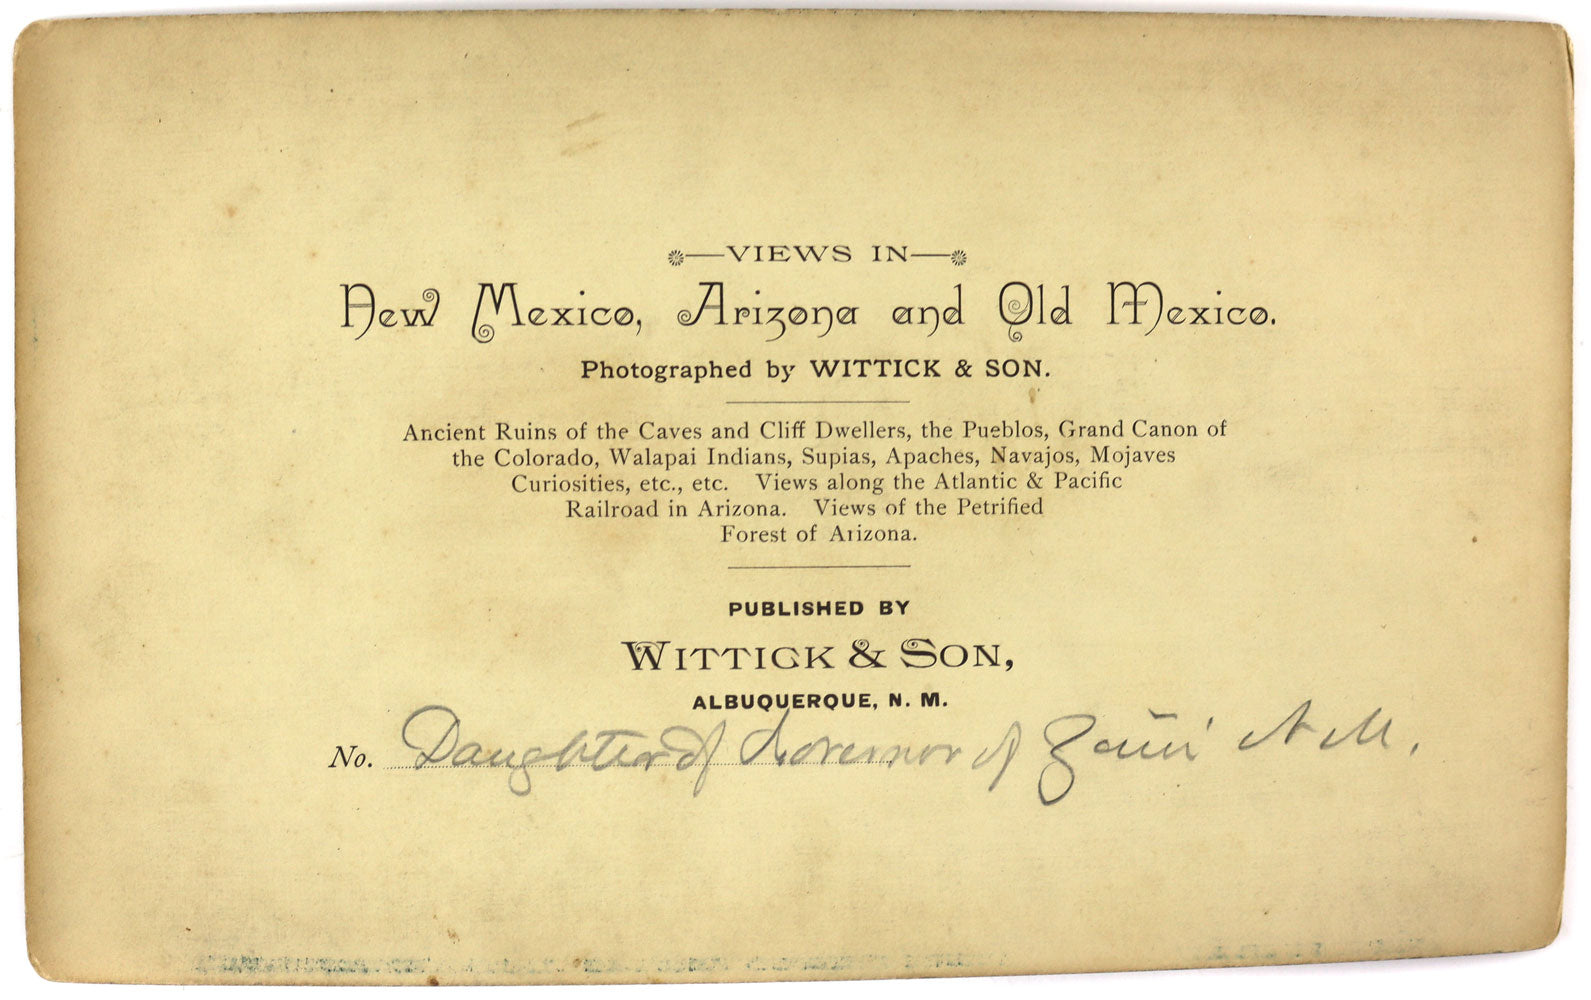 VIEWS IN
New Mexico, Arizona and Old Mexico.
Photographed by WITTICK & SON.
Ancient Ruins of the Caves and Cliff Dwellers, the Pueblos, Grand Canon of
the Colorado, Walapai Indians, Supias, Apaches, Navajos, Mojaves
Curiosities, etc., etc. Views along the Atlantic & Pacific
Railroad in Arizona. Views of the Petrified
Forest of Arizona.
PUBLISHED BY
WITTICK & SON,
ALBUQUERQUE, N. M.
No. Daughter of Governor of Zuñi N M.